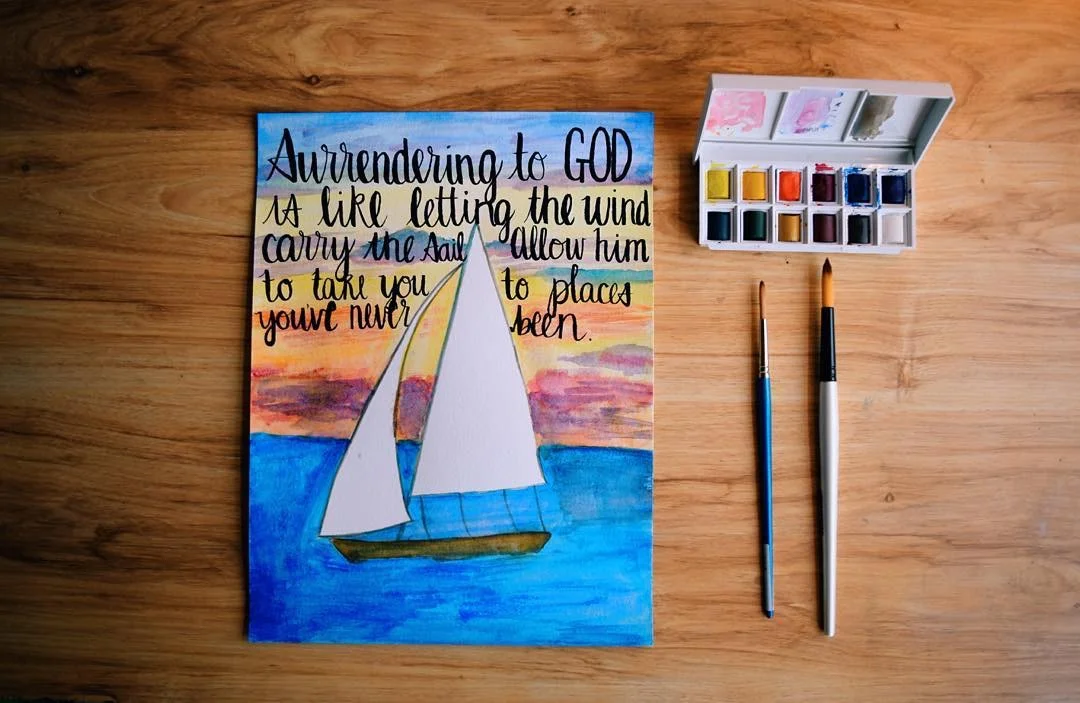 Surrendering to GOD
is like letting the wind
carry the sail Allow him
to take you to places
you've never been.